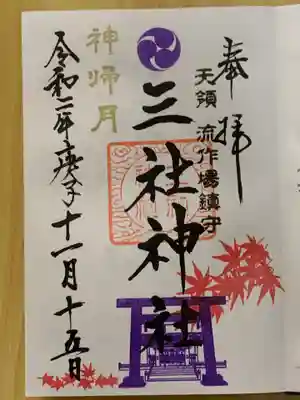 奉拝
天領 流作場鎮守
三社神社
神帰月
令和二年庚子十一月十五日